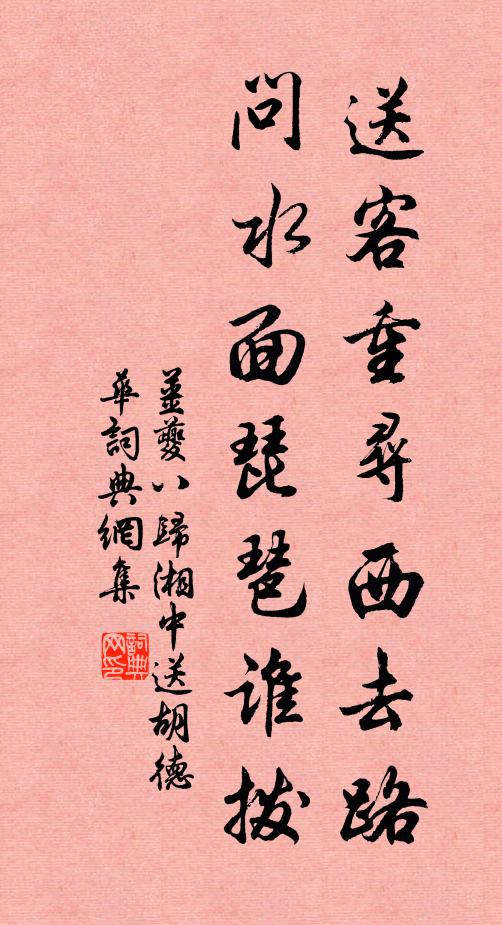 送客重尋西去路
問水面琵琶誰撥
姜夔八歸湘中送胡德
華詞典網集
詞典
网印